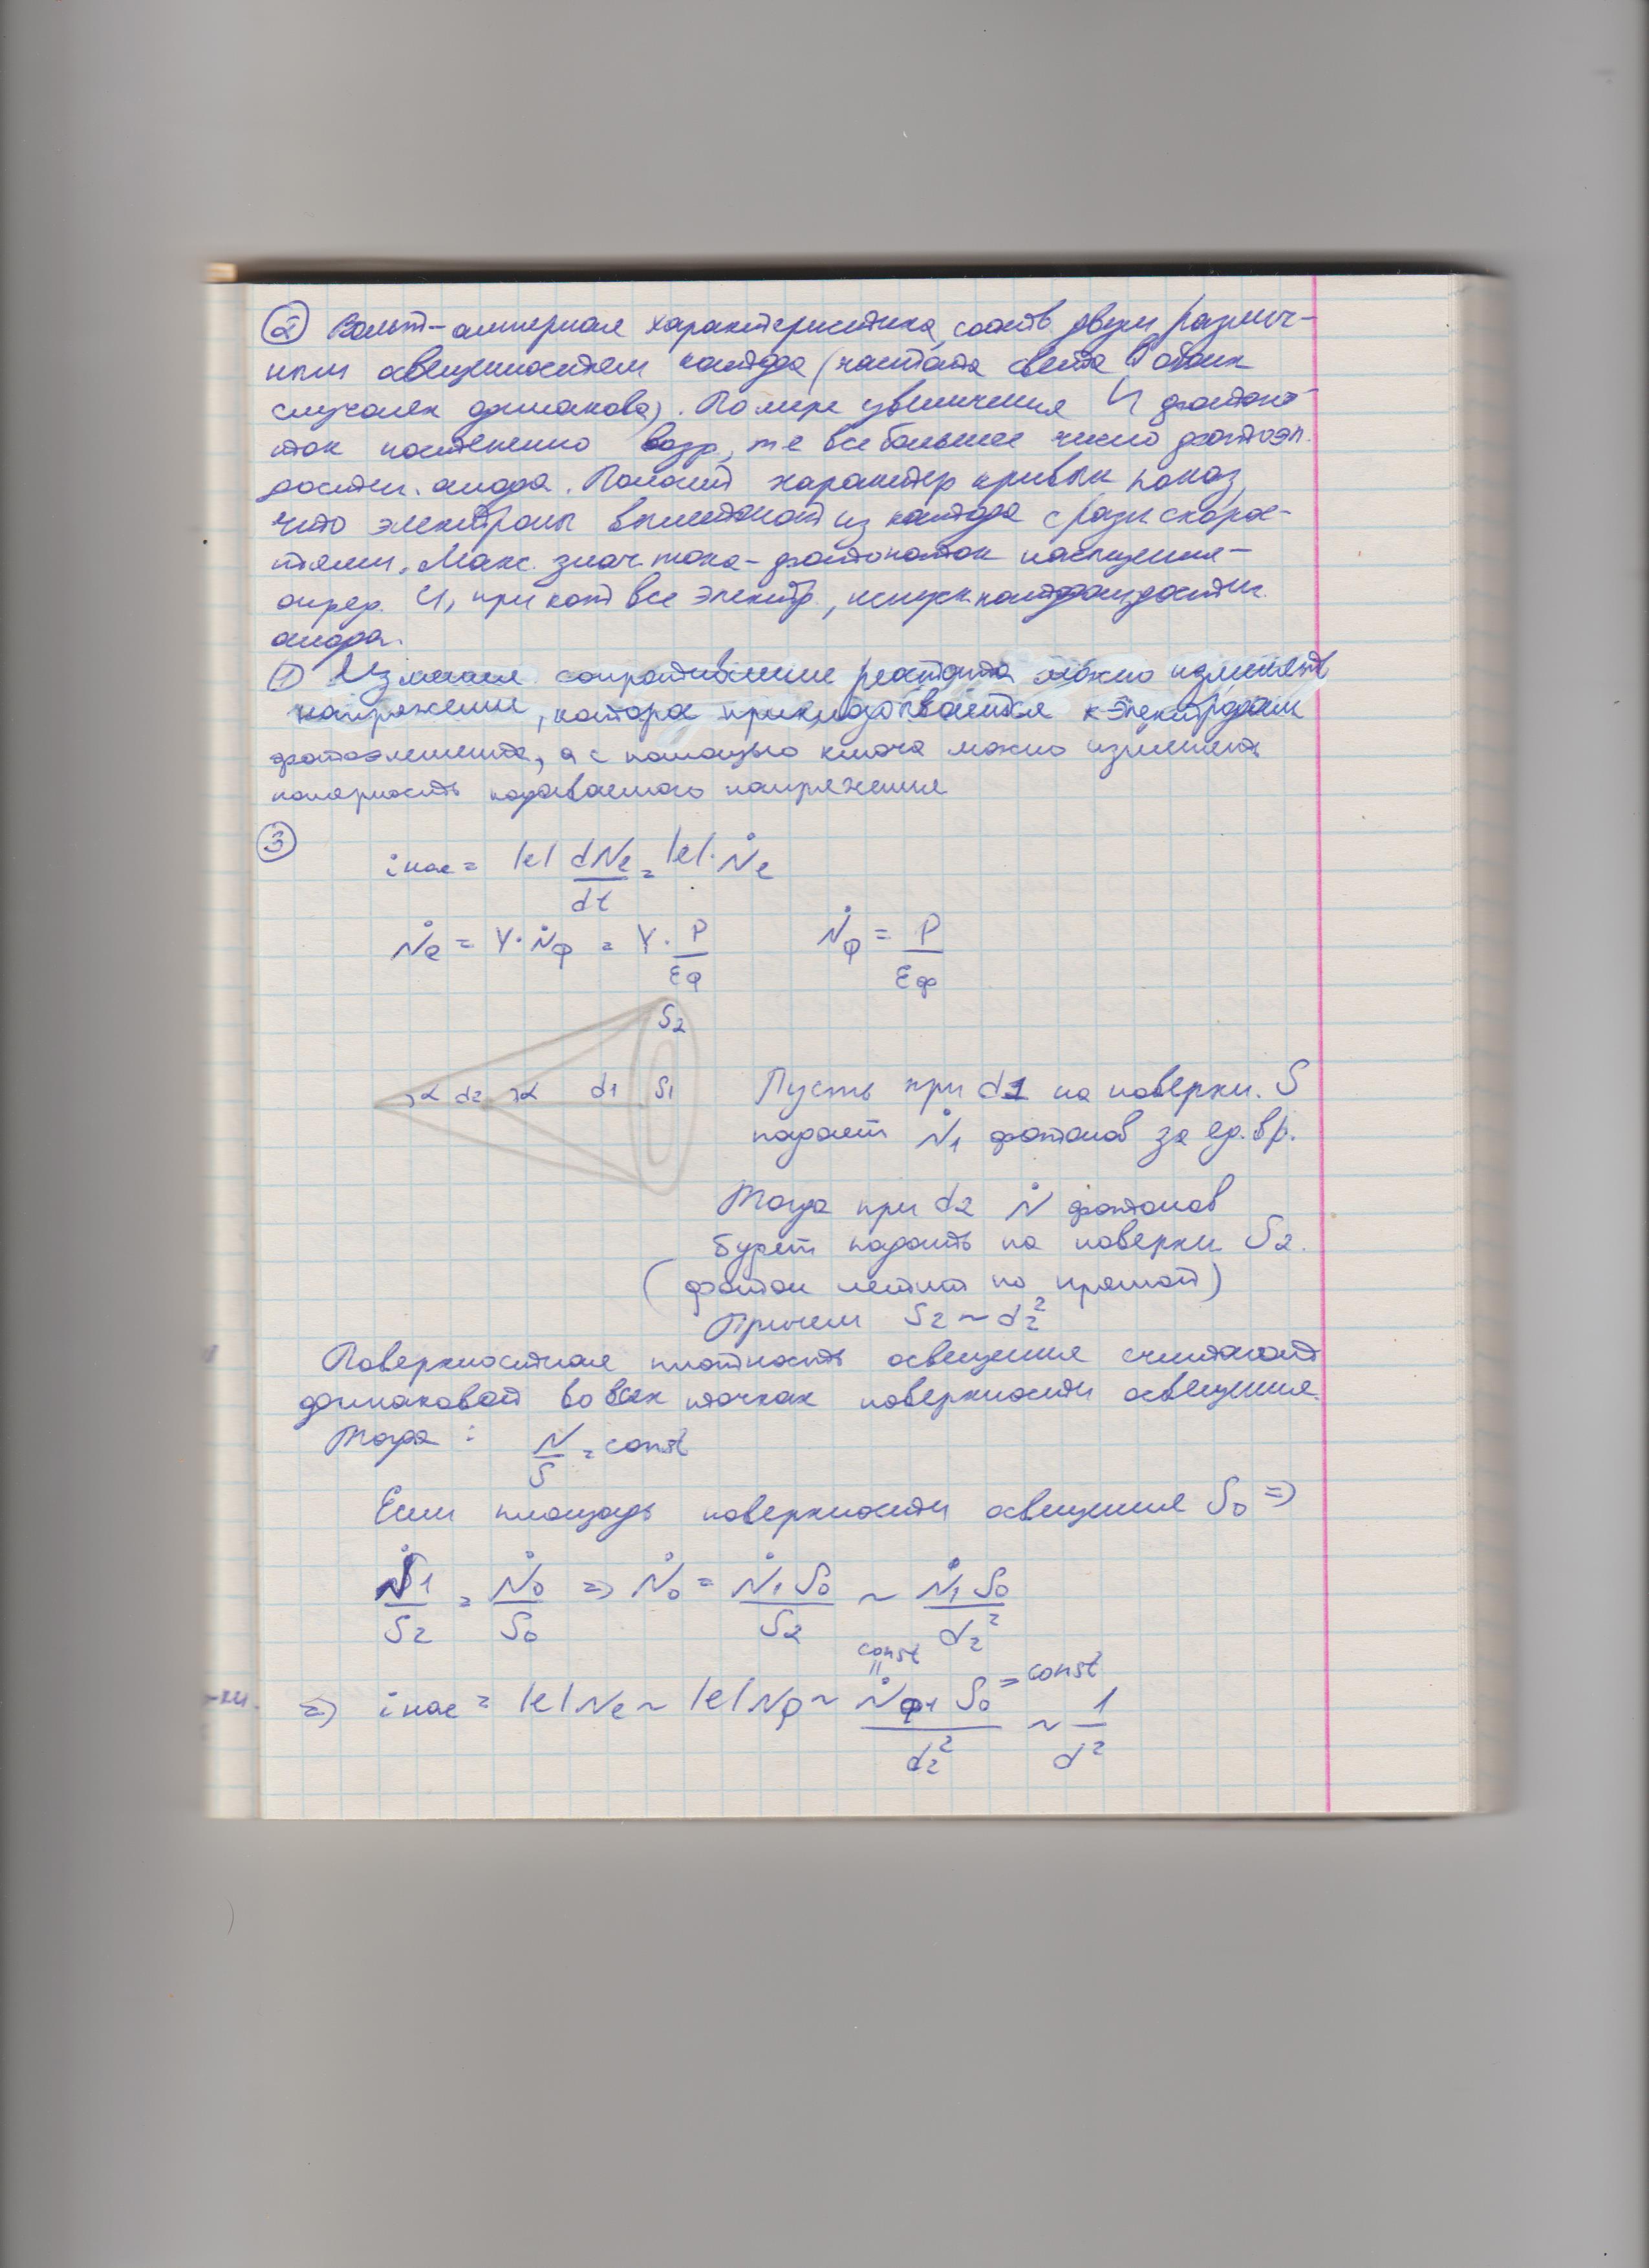 ② Вольт-амперная характеристика, соотв. двум различ-
ным освещенностям катода (частота света в обоих
случаях одинакова). По мере увеличения U фото-
ток постепенно возр, т е все большее число фотоэл.
достиг. анода. Пологий характер кривых показ,
что электроны вылетают из катода с разн скорос-
тями. Макс. знач. тока - фототок насыщения -
опред. U, при кот все электр., испуск катодом, достиг.
анода.
① Изменяя сопротивление реостата можно изменять
напряжение, которое прикладывается к электродам
фотоэлемента, а с помощью ключа можно изменять
полярность подаваемого напряжения
③
iнас = |e| dNe/dt = |e|·Ṅe
Ṅe = Y·Ṅф = Y·P/εф    Ṅф = P/εф
S2
α d2 α d1 S1
Пусть при d1 на поверхн. S
падает Ṅ1 фотонов за ед. вр.
Тогда при d2 Ṅ фотонов
будет падать на поверхн S2.
(фотон летит по прямой)
Причем S2 ~ d2²
Поверхностная плотность освещения считают
одинаковой во всех точках поверхности освещения.
Тогда: N/S = const
Если площадь поверхности освещения S0 =>
Ṅ1/S2 = Ṅ0/S0 => Ṅ0 = Ṅ1 S0/S2 ~ Ṅ1 S0/d2²
const
=> iнас = |e|Ne ~ |e|Nф ~ Ṅф1 S0/d2² = const ~ 1/d²